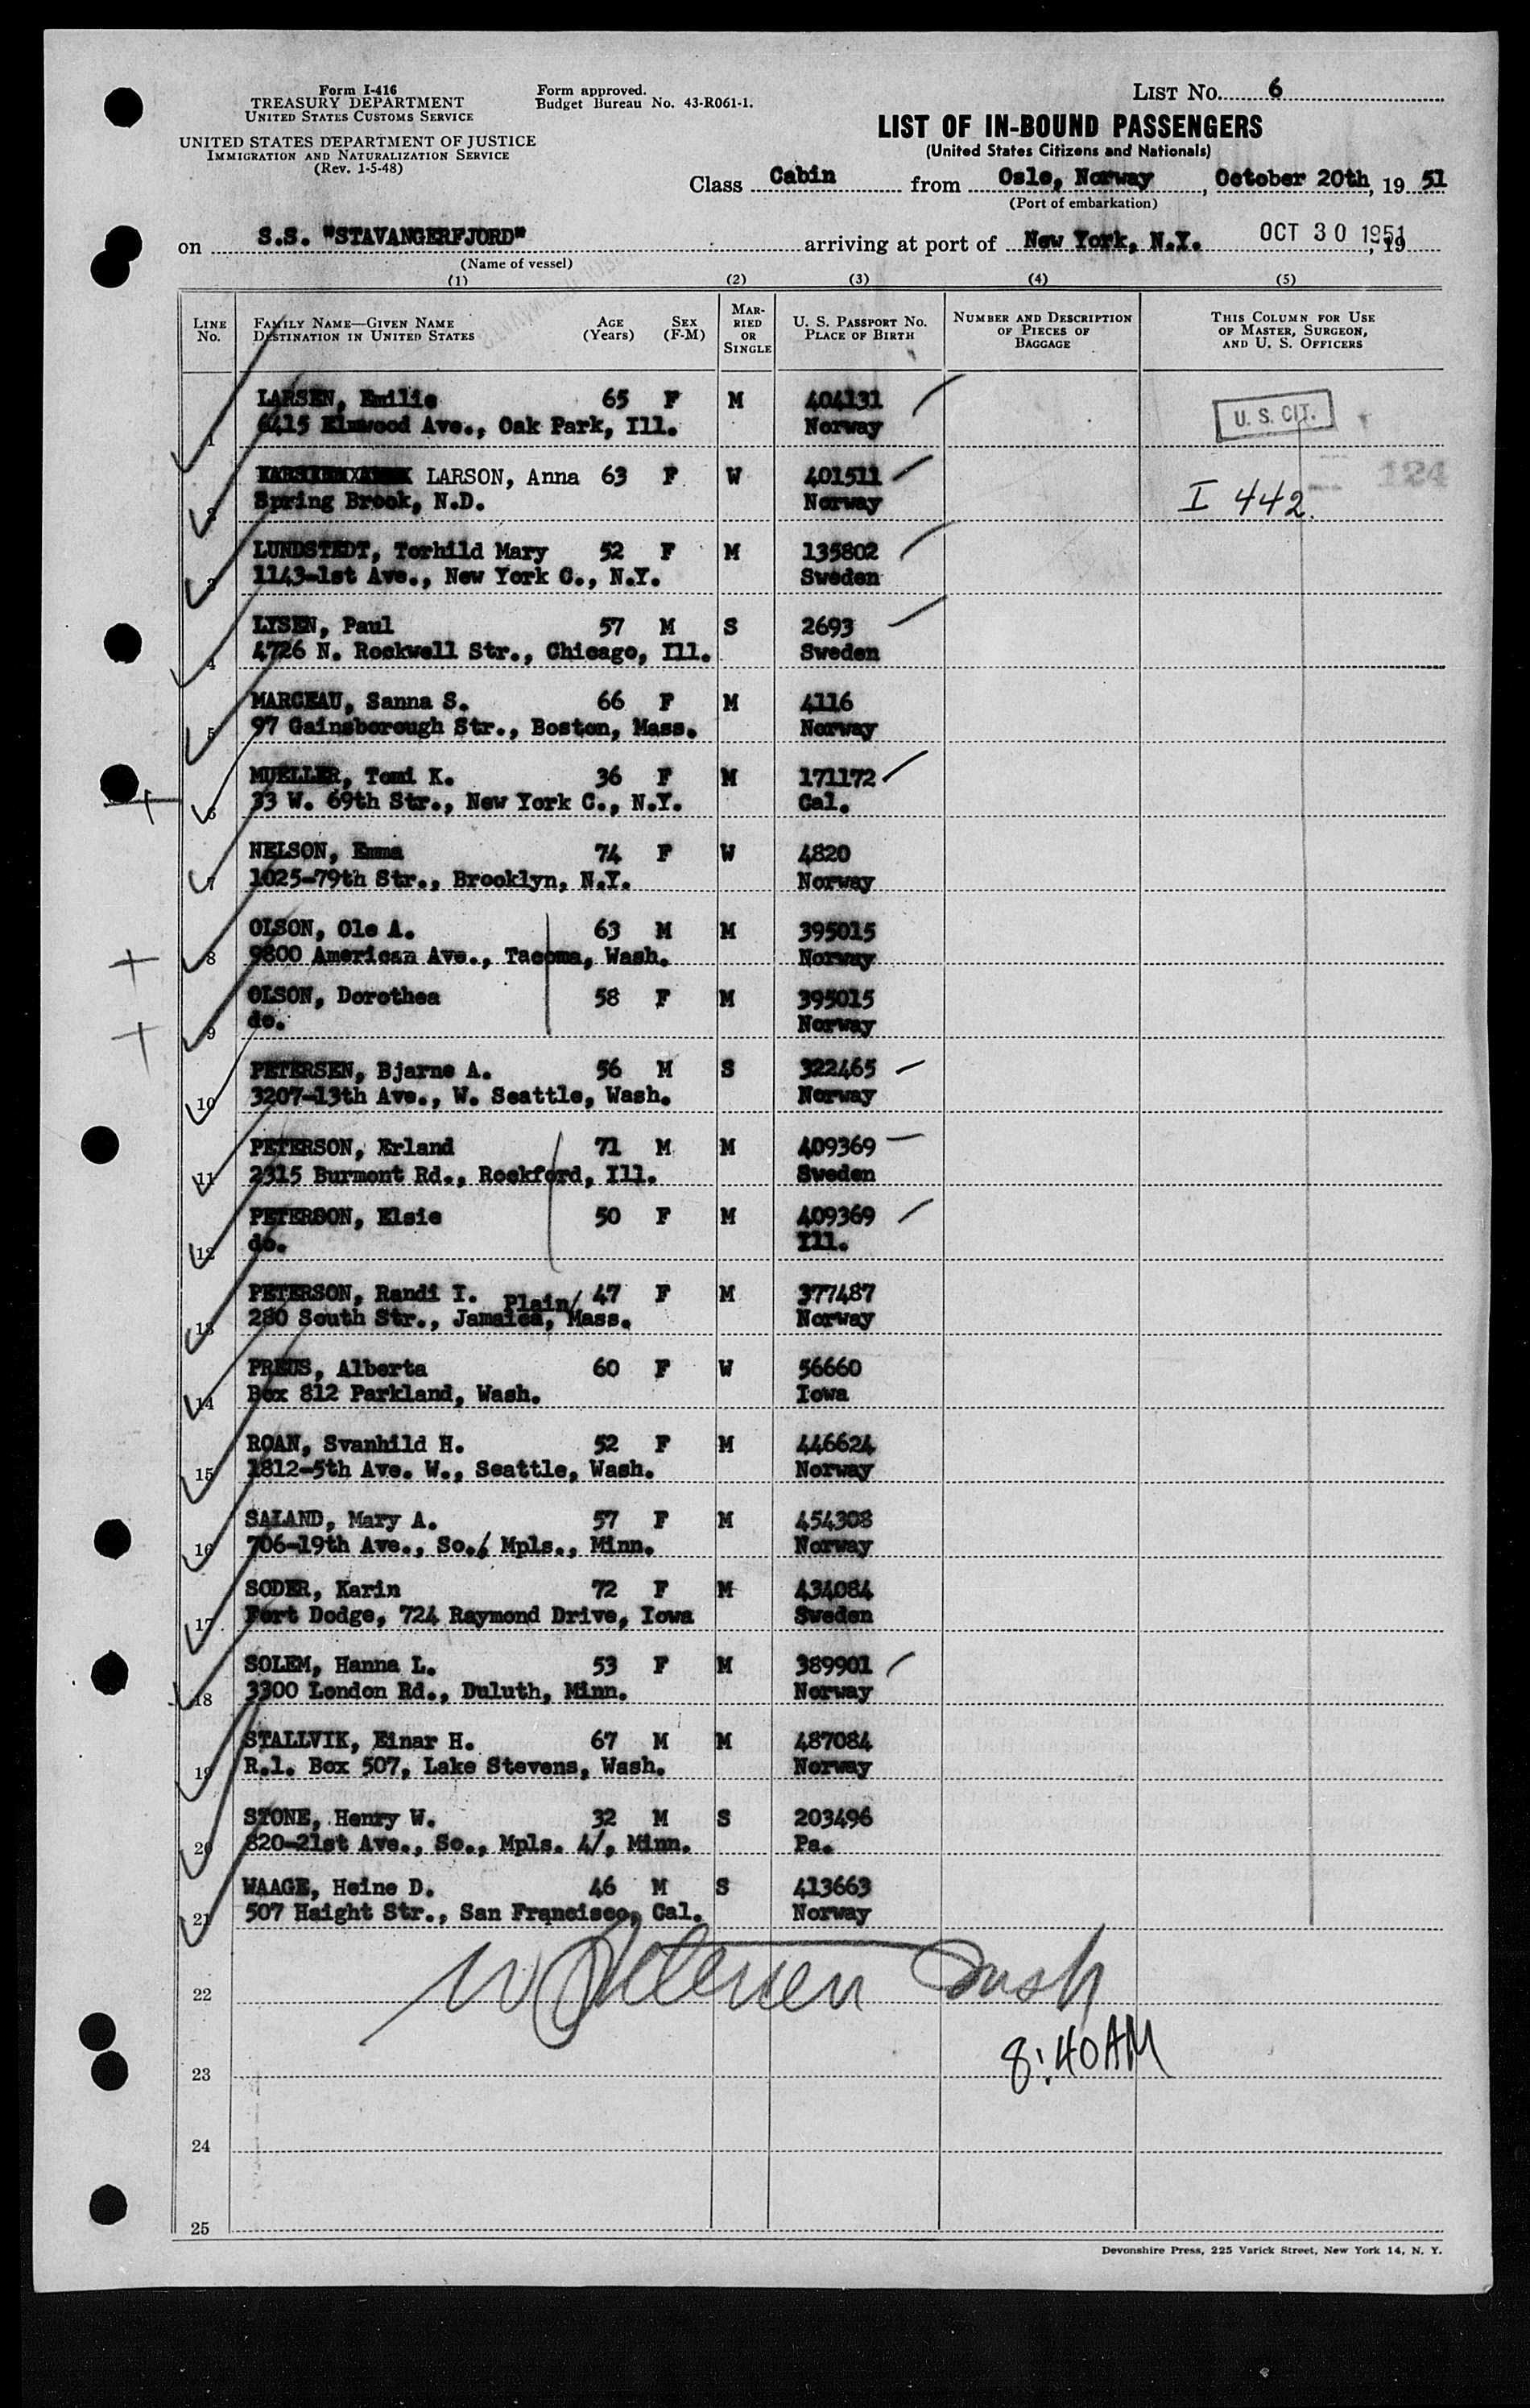 Form I-416
TREASURY DEPARTMENT
UNITED STATES CUSTOMS SERVICE
UNITED STATES DEPARTMENT OF JUSTICE
IMMIGRATION AND NATURALIZATION SERVICE
(Rev. 1-5-48)
Form approved.
Budget Bureau No. 43-R061-1.
LIST NO. 6
LIST OF IN-BOUND PASSENGERS
(United States Citizens and Nationals)
Class Cabin from Oslo, Norway, October 20th, 19 51
(Port of embarkation)
on S.S. "STAVANGERFJORD" arriving at port of New York, N.Y. OCT 30 1951, 19
(Name of vessel)
(1) (2) (3) (4) (5)
LINE NO. FAMILY NAME—GIVEN NAME DESTINATION IN UNITED STATES AGE (Years) SEX (F-M) MARRIED OR SINGLE U. S. PASSPORT NO. PLACE OF BIRTH NUMBER AND DESCRIPTION OF PIECES OF BAGGAGE THIS COLUMN FOR USE OF MASTER, SURGEON, AND U. S. OFFICERS
1 LARSEN, Emilie 65 F M 404131 U. S. CIT.
6415 Elmwood Ave., Oak Park, Ill. Norway
2 LARSON, Anna 63 F W 401511 124
Spring Brook, N.D. Norway I 442.
3 LUNDSTEDT, Torhild Mary 52 F M 135802
1143-1st Ave., New York C., N.Y. Sweden
4 LYSEN, Paul 57 M S 2693
4726 N. Rockwell Str., Chicago, Ill. Sweden
5 MARCEAU, Sanna S. 66 F M 4116
97 Gainsborough Str., Boston, Mass. Norway
6 MUELLER, Tomi K. 36 F M 171172
33 W. 69th Str., New York C., N.Y. Cal.
7 NELSON, Emma 74 F W 4820
1025-79th Str., Brooklyn, N.Y. Norway
8 OLSON, Ole A. 63 M M 395015
9800 American Ave., Tacoma, Wash. Norway
9 OLSON, Dorothea 58 F M 395015
do. Norway
10 PETERSEN, Bjarne A. 56 M S 322465
3207-13th Ave., W. Seattle, Wash. Norway
11 PETERSON, Erland 71 M M 409369
2315 Burmont Rd., Rockford, Ill. Sweden
12 PETERSON, Elsie 50 F M 409369
do. Ill.
13 PETERSON, Randi I. 47 F M 377487
280 South Str., Jamaica, Plain/ Mass. Norway
14 PREUS, Alberta 60 F W 56660
Box 812 Parkland, Wash. Iowa
15 ROAN, Svanhild H. 52 F M 446624
1812-5th Ave. W., Seattle, Wash. Norway
16 SALAND, Mary A. 57 F M 454308
706-19th Ave., So./ Mpls., Minn. Norway
17 SODER, Karin 72 F M 434084
Fort Dodge, 724 Raymond Drive, Iowa Sweden
18 SOLEM, Hanna L. 53 F M 389901
3300 London Rd., Duluth, Minn. Norway
19 STALLVIK, Einar H. 67 M M 487084
R.1. Box 507, Lake Stevens, Wash. Norway
20 STONE, Henry W. 32 M S 203496
820-21st Ave., So., Mpls. 4/, Minn. Pa.
21 WAAGE, Heine D. 46 M S 413663
507 Haight Str., San Francisco, Cal. Norway
22
23 8:40AM
24
25
Devonshire Press, 225 Varick Street, New York 14, N. Y.